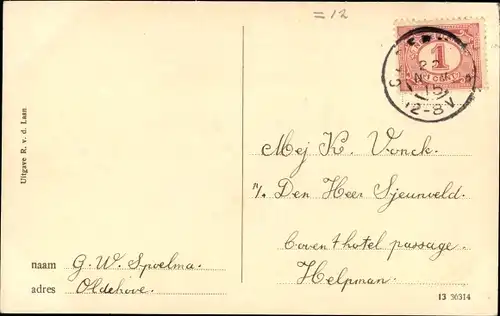 = 12
1
12-8V
Uitgave R. v. d. Laan
Mej K. Vonck.
p/a Den Heer Sjeunveld.
boven t hotel passage.
Helpman.
naam G. W. Spoelma.
adres Oldehove.
13 30314